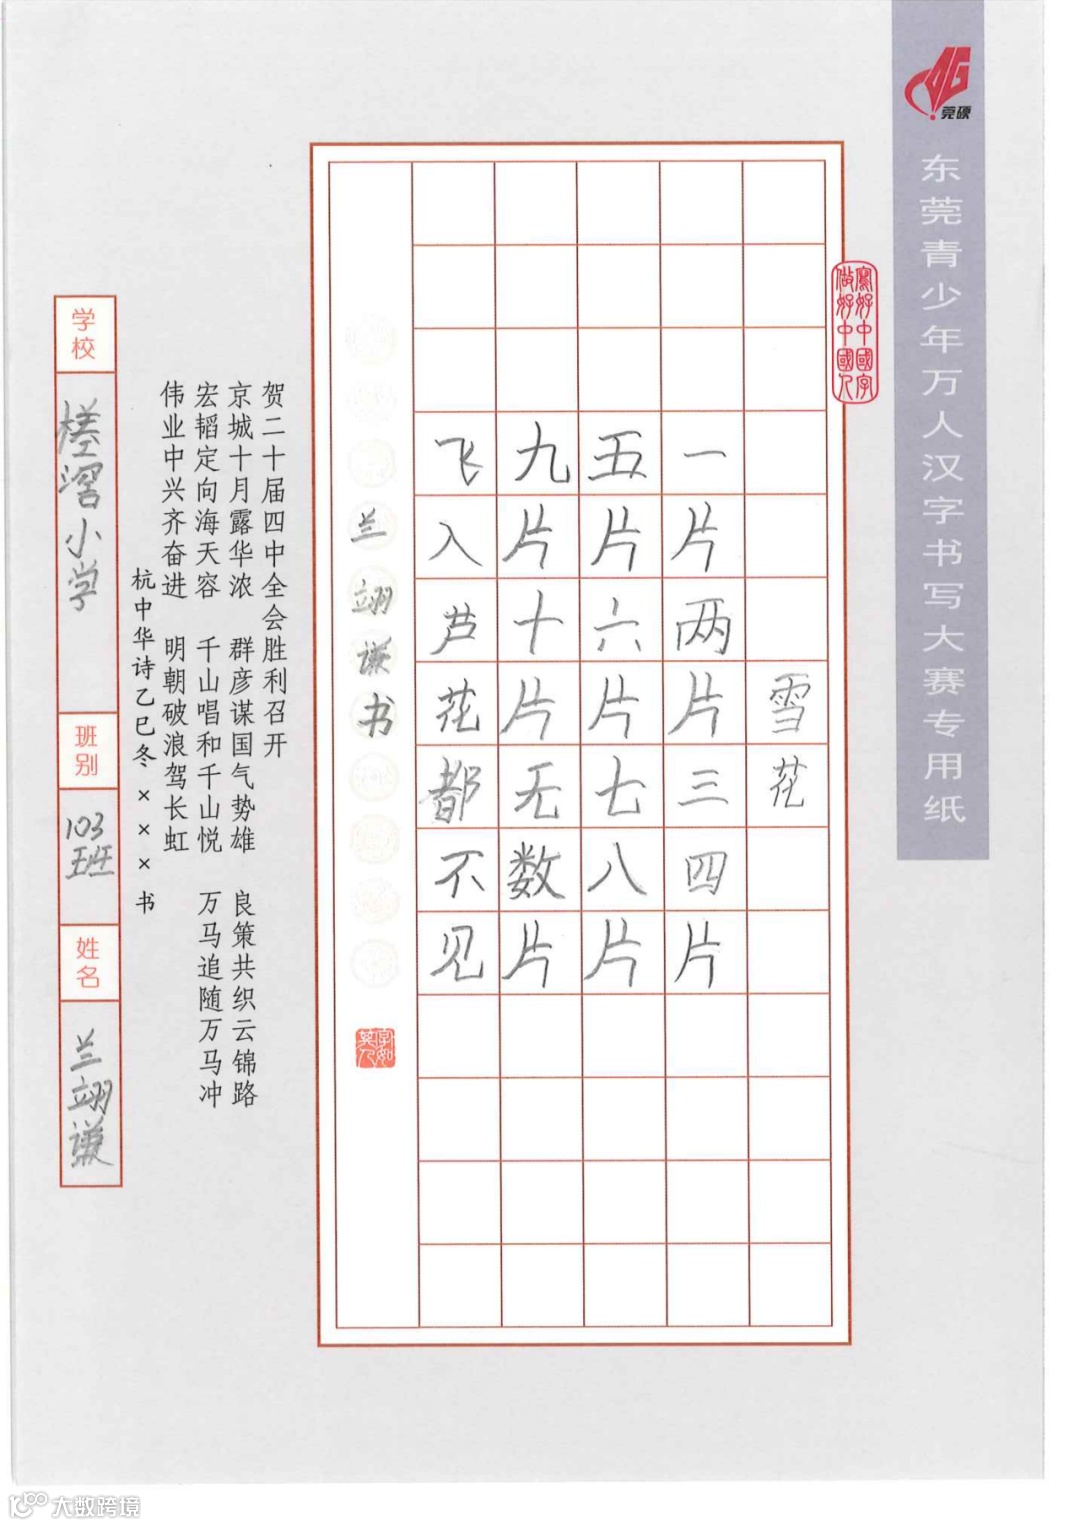 莞硬
东莞青少年万人汉字书写大赛专用纸
寫好中國字
做好中國人
雪花
一片两片三四片
五片六片七八片
九片十片无数片
飞入芦花都不见
兰翊谦书
贺二十届四中全会胜利召开
京城十月露华浓 群彦谋国气势雄 良策共织云锦路
宏韬定向海天容 千山唱和千山悦 万马追随万马冲
伟业中兴齐奋进 明朝破浪驾长虹
杭中华诗乙巳冬×××书
学校
槎滘小学
班别
103班
姓名
兰翊谦
大数跨境